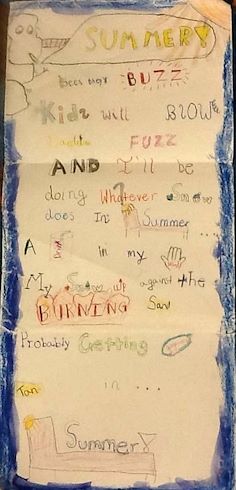 SUMMER!
Bees will BUZZ
Kids will BLOW
FUZZ
AND I'll be
doing Whatever Snow
does In: Summer ...
A Drink in my
My Snow up against the
BURNING Sand
Probably Getting
Tan in ...
Summer!